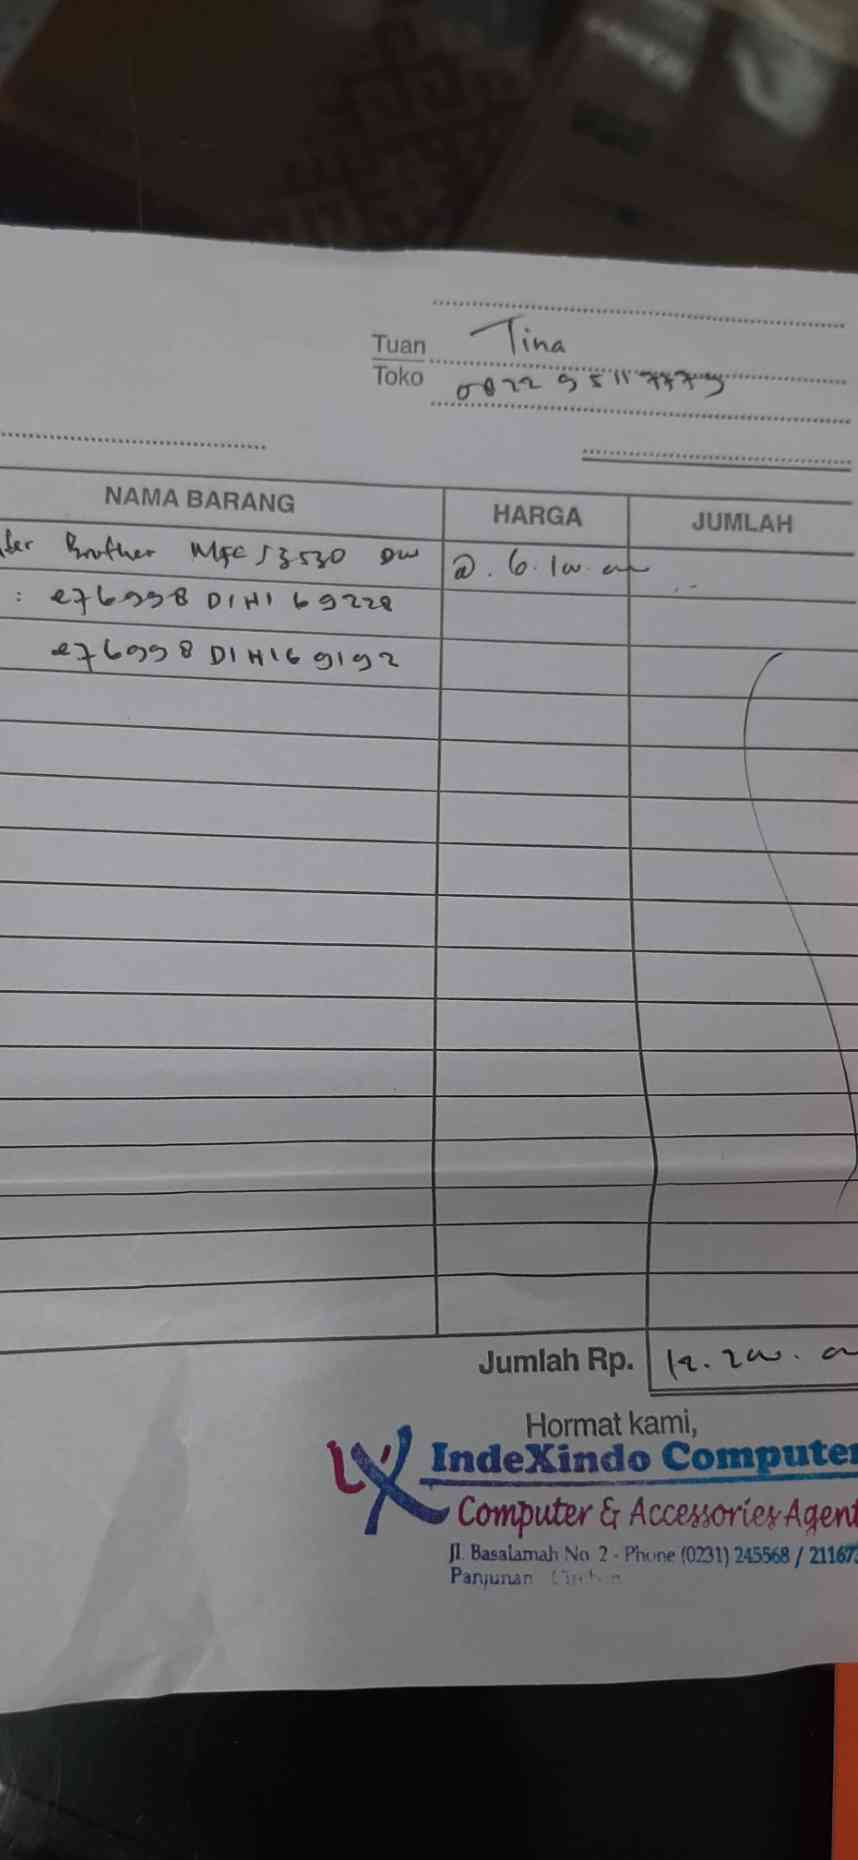 Tuan Tina
Toko 0822 9511 7779
NAMA BARANG HARGA JUMLAH
Brother MFC J3530 DW @. 6.100.000
: E76998D1H169228
E76998D1H169192
Jumlah Rp. 12.200.
Hormat kami,
IndeXindo Computer
Computer & Accessories Agent
Jl. Basalamah No. 2 - Phone (0231) 245568 / 211673
Panjunan Cirebon